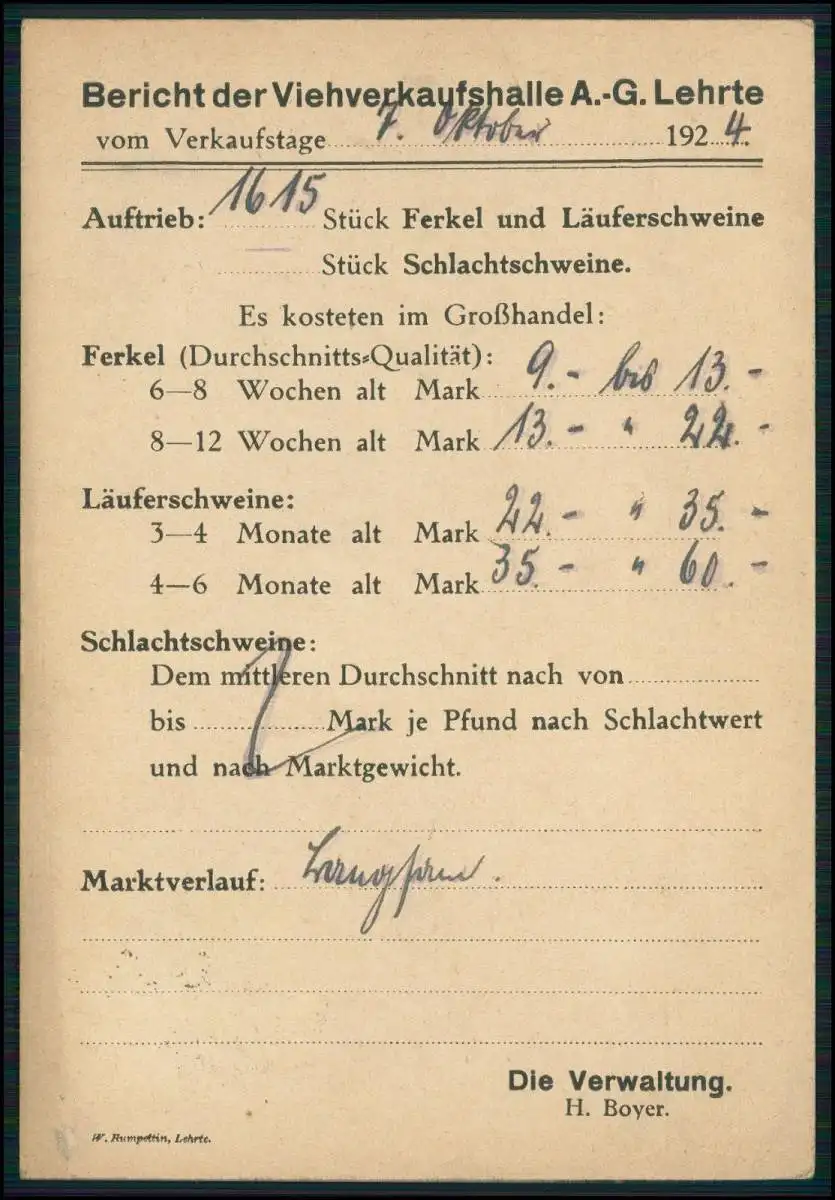 Bericht der Viehverkaufshalle A.-G. Lehrte
vom Verkaufstage 7. Oktober 1924.
Auftrieb: 1615 Stück Ferkel und Läuferschweine
Stück Schlachtschweine.
Es kosteten im Großhandel:
Ferkel (Durchschnitts-Qualität):
6—8 Wochen alt Mark 9.- bis 13.-
8—12 Wochen alt Mark 13.- " 22.-
Läuferschweine:
3—4 Monate alt Mark 22.- " 35.-
4—6 Monate alt Mark 35.- " 60.-
Schlachtschweine:
Dem mittleren Durchschnitt nach von
bis Mark je Pfund nach Schlachtwert
und nach Marktgewicht.
Marktverlauf: Langsam.
Die Verwaltung.
H. Boyer.
W. Rumpeltin, Lehrte.